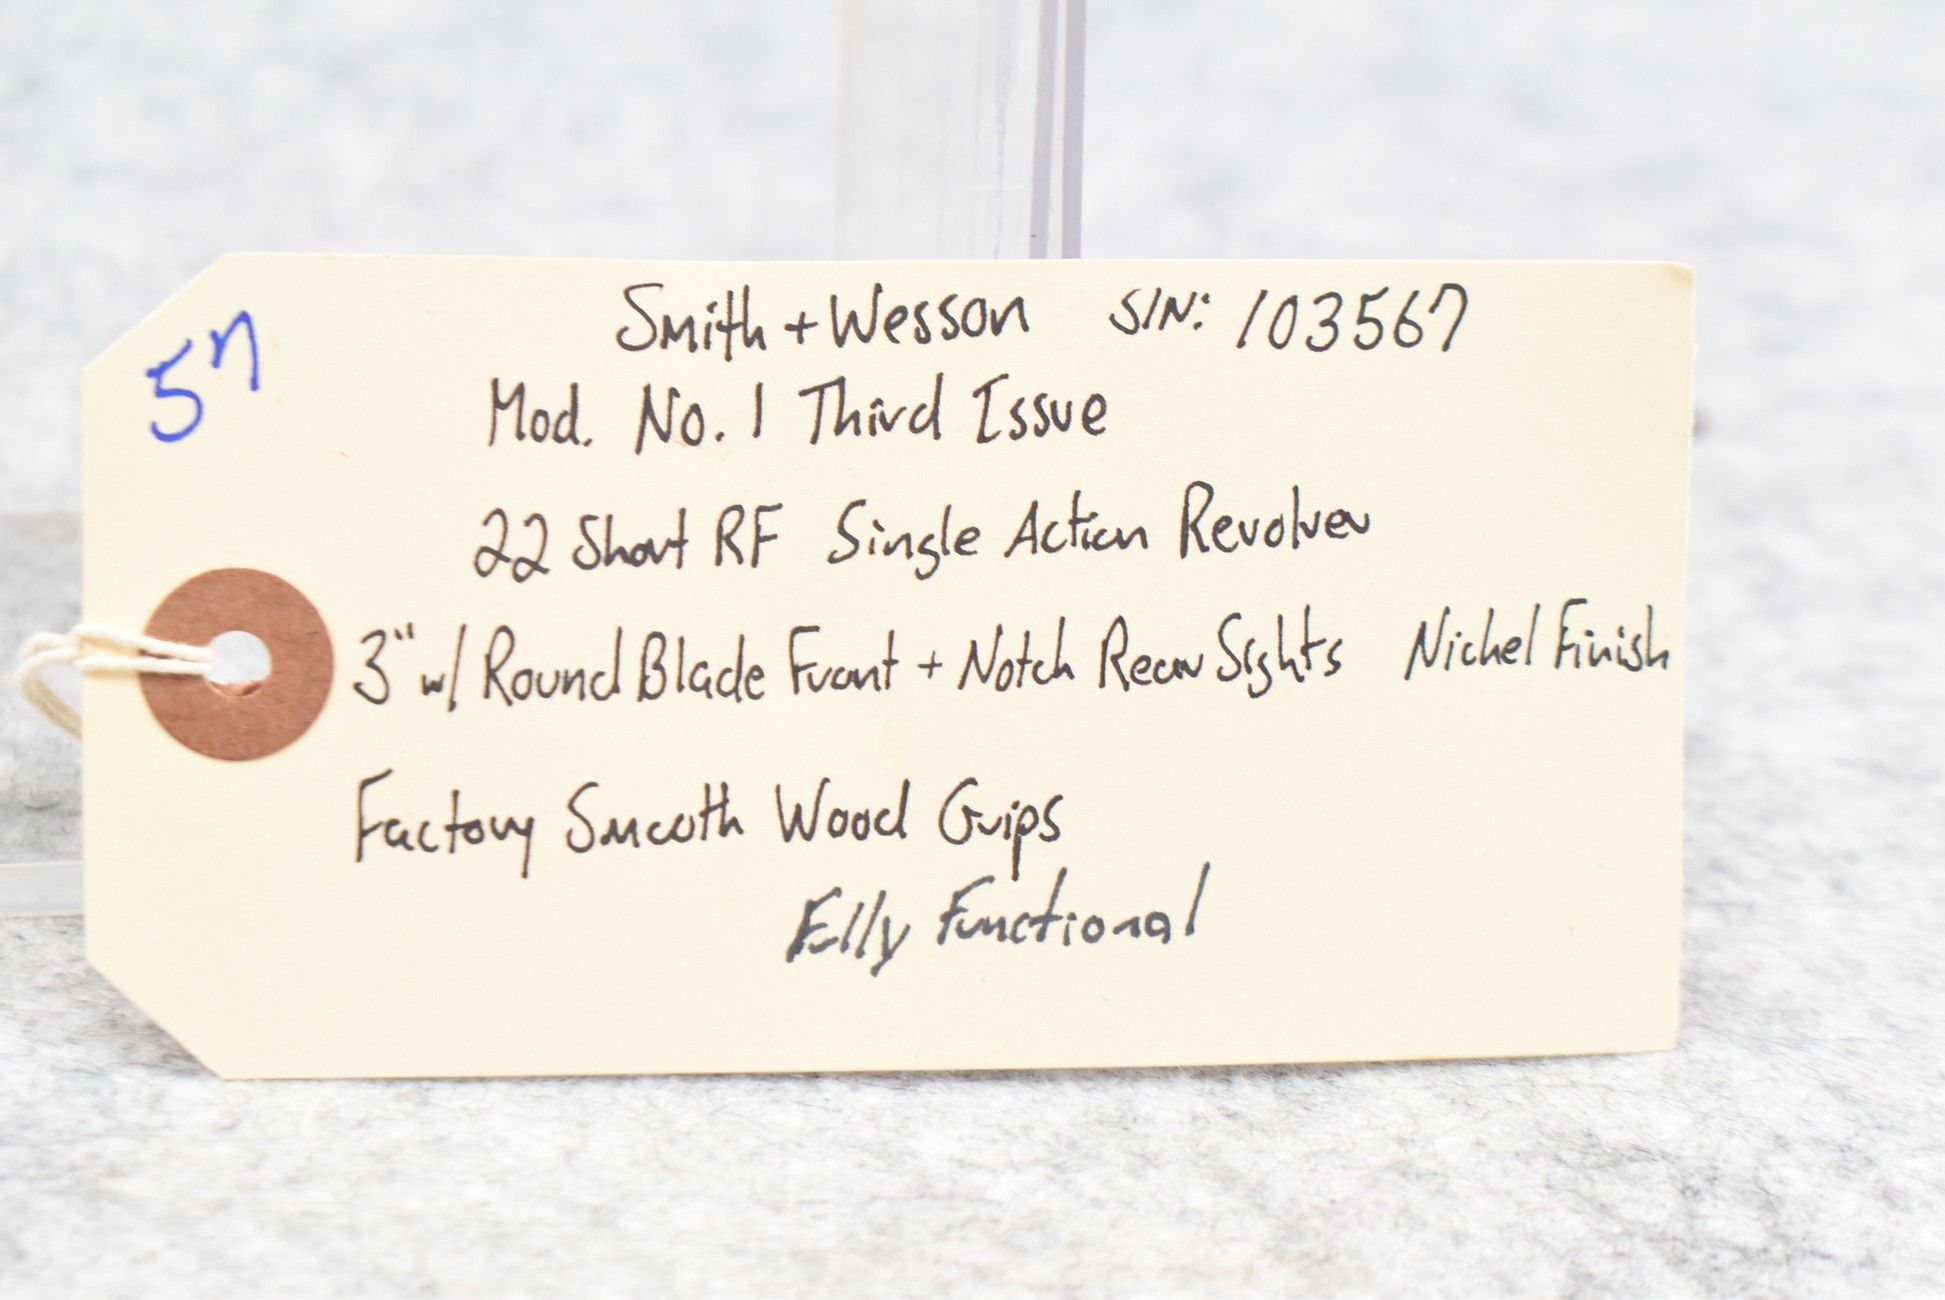 5n
Smith + Wesson S/N: 103567
Mod. No. 1 Third Issue
22 Short RF Single Action Revolver
3" w/ Round Blade Front + Notch Rear Sights Nickel Finish
Factory Smooth Wood Grips
Fully Functional